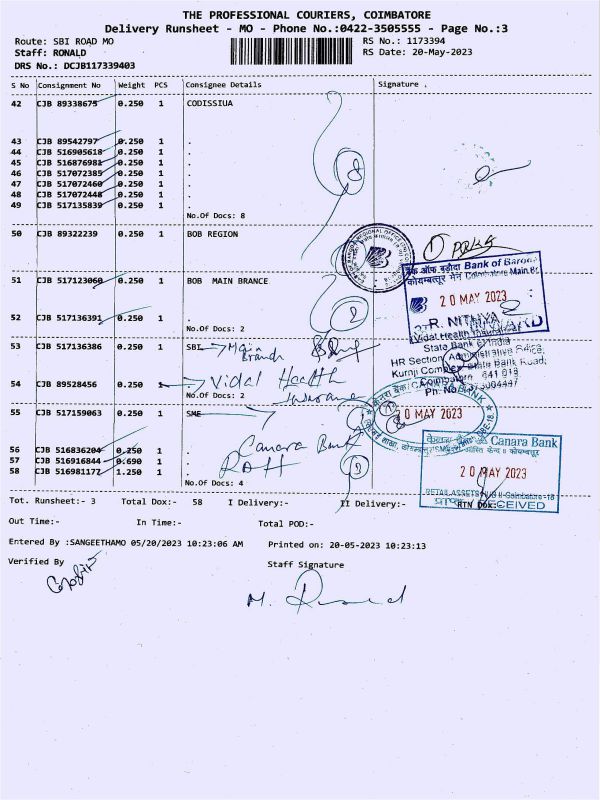 THE PROFESSIONAL COURIERS, COIMBATORE
Delivery Runsheet - MO - Phone No.:0422-3505555 - Page No.:3
Route: SBI ROAD MO
RS No.: 1173394
Staff: RONALD
RS Date: 20-May-2023
DRS No.: DCJB117339403
S No Consignment No Weight PCS Consignee Details Signature .
42 CJB 89338675 0.250 1 CODISSIUA
43 CJB 89542797 0.250 1 .
44 CJB 516905618 0.250 1 .
45 CJB 516876981 0.250 1 .
46 CJB 517072385 0.250 1 .
47 CJB 517072460 0.250 1 .
48 CJB 517072448 0.250 1 .
49 CJB 517135839 0.250 1 .
No.Of Docs: 8
8
50 CJB 89322239 0.250 1 BOB REGION
51 CJB 517123060 0.250 1 BOB MAIN BRANCE
बैंक ऑफ बड़ौदा Bank of Baroda
20 MAY 2023
52 CJB 517136391 0.250 1 .
No.Of Docs: 2
2
R. NITHYA
53 CJB 517136386 0.250 1 SBI Main Branch
State Bank of India
HR Section, Administrative Office,
State Bank Road,
54 CJB 89528456 0.250 1 Vidal Health
No.Of Docs: 2
Coimbatore 641 018
55 CJB 517159063 0.250 1 SME
20 MAY 2023
Canara Bank
56 CJB 516836204 0.250 1 .
57 CJB 516916844 0.690 1 .
58 CJB 516981177 1.250 1 .
No.Of Docs: 4
Canara Bank
20 MAY 2023
RECEIVED
Tot. Runsheet:- 3 Total Dox:- 58 I Delivery:- II Delivery:- RTN Dox:-
Out Time:- In Time:- Total POD:-
Entered By :SANGEETHAMO 05/20/2023 10:23:06 AM Printed on: 20-05-2023 10:23:13
Verified By Staff Signature